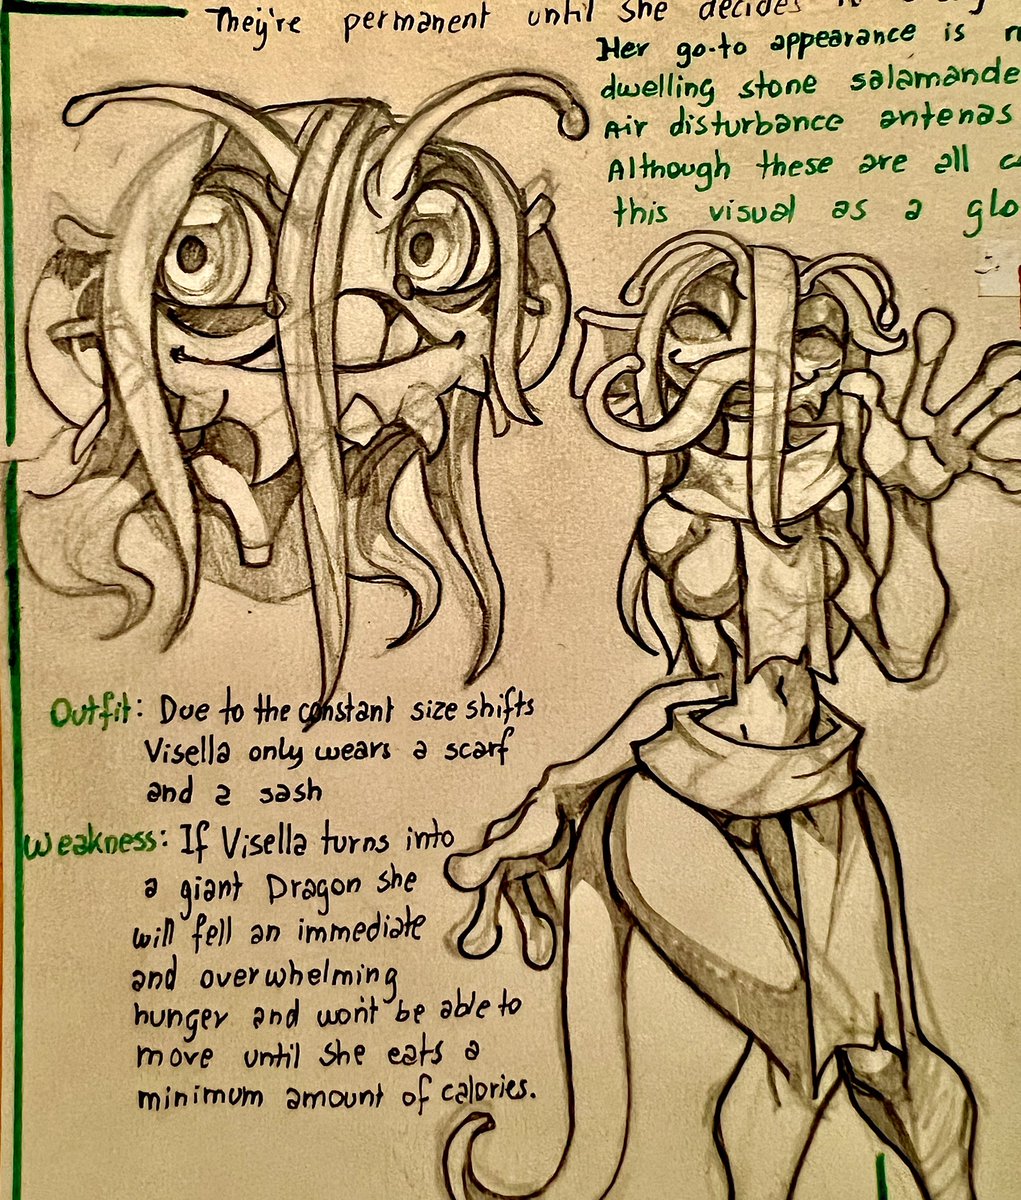 They're permanent until she decides
Her go-to appearance is
dwelling stone salamande
Air disturbance antenas
Although these are all
this visual as a glo
Outfit: Due to the constant size shifts
Visella only wears a scarf
and 2 sash
Weakness: If Visella turns into
a giant Dragon she
will fell an immediate
and overwhelming
hunger and won't be able to
move until she eats a
minimum amount of calories.